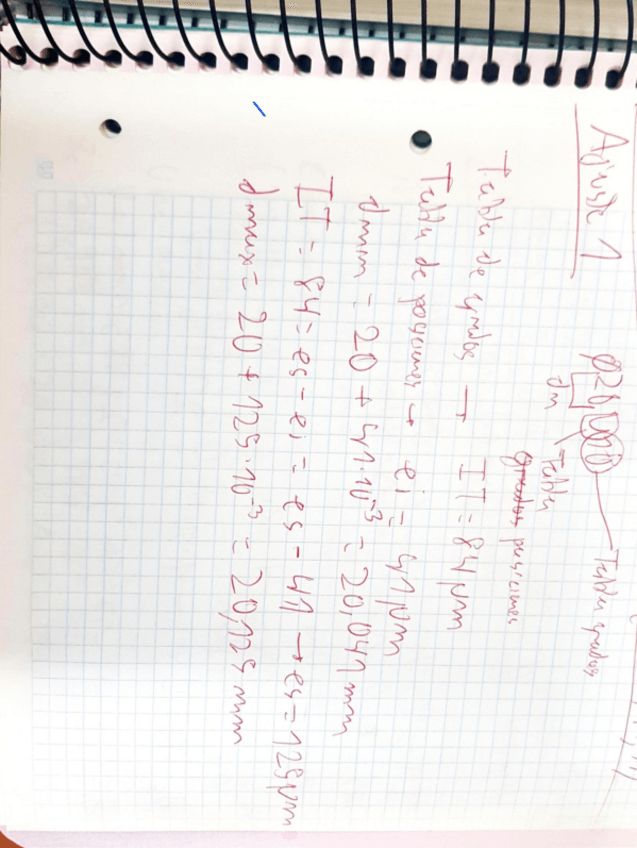 Ajuste 1
Ø20 u10
dm Tabla posiciones
Tabla grados
Tabla de grados → IT = 84 μm
Tabla de posiciones → ei = 41 μm
dmin = 20 + 41·10⁻³ = 20,041 mm
IT = 84 = es - ei = es - 41 → es = 125 μm
dmax = 20 + 125·10⁻³ = 20,125 mm